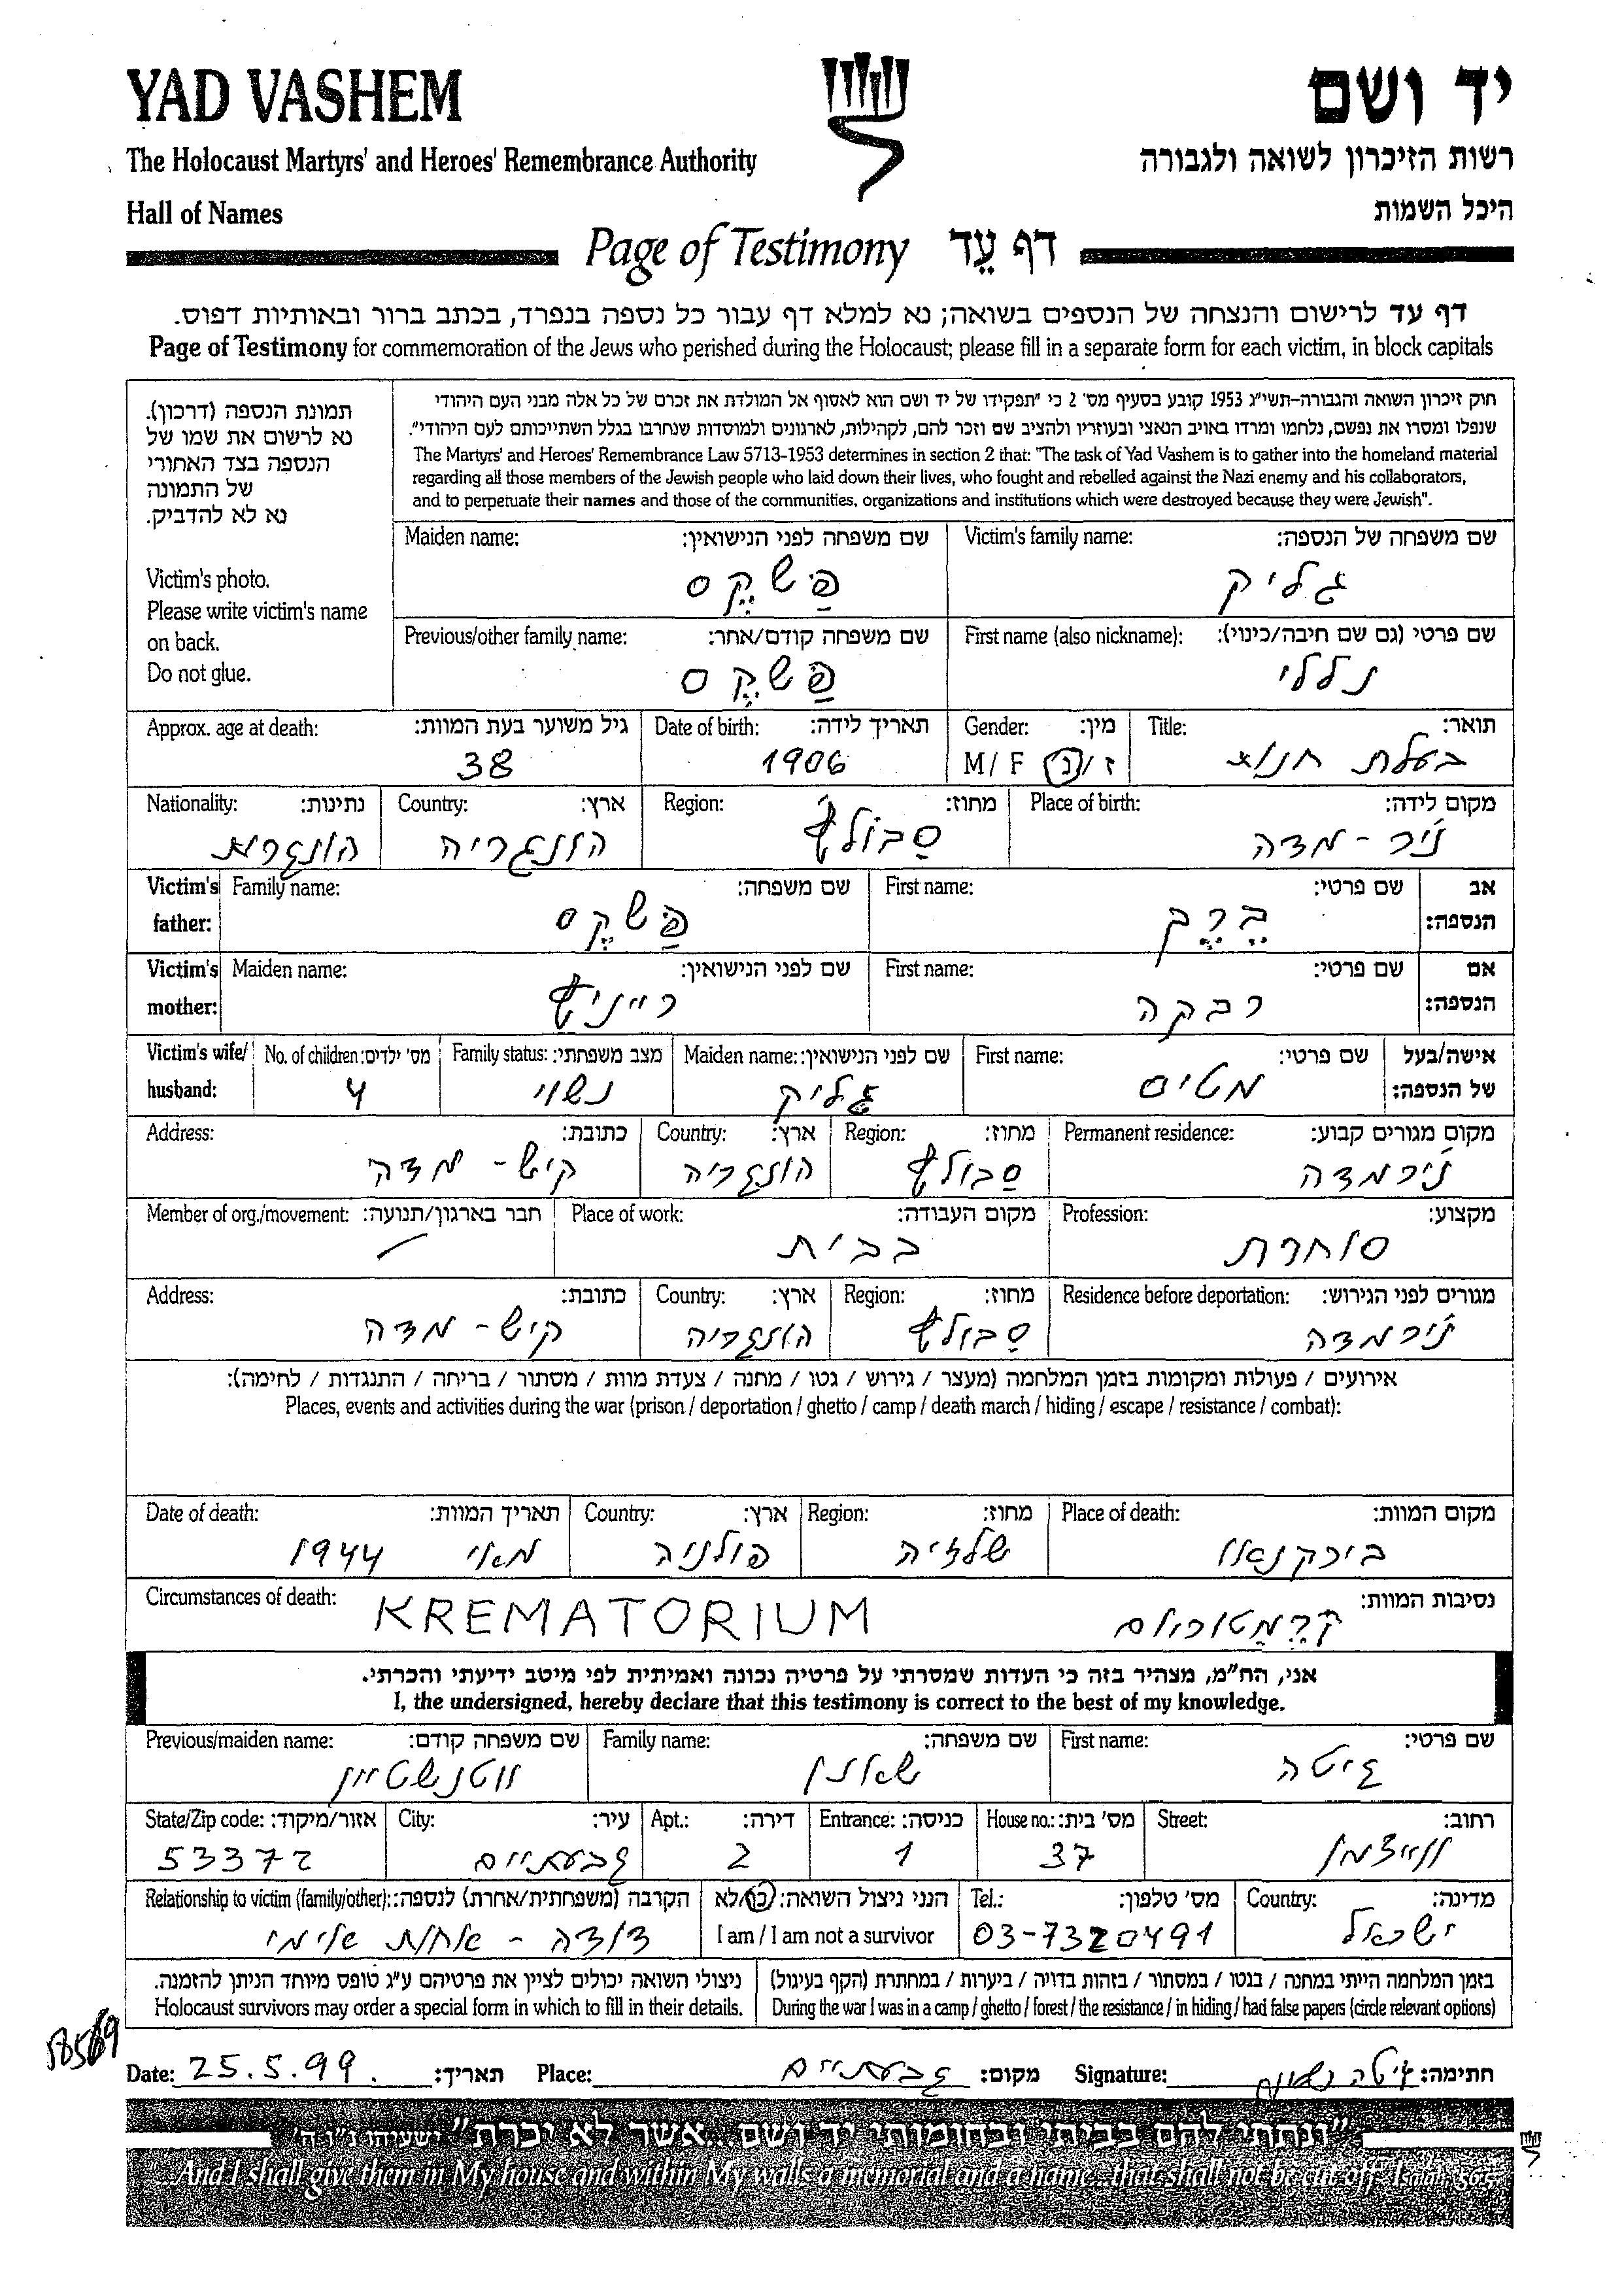 YAD VASHEM
יד ושם
The Holocaust Martyrs' and Heroes' Remembrance Authority
רשות הזיכרון לשואה ולגבורה
Hall of Names
היכל השמות
Page of Testimony דף עֵד
דף עד לרישום והנצחה של הנספים בשואה; נא למלא דף עבור כל נספה בנפרד, בכתב ברור ובאותיות דפוס.
Page of Testimony for commemoration of the Jews who perished during the Holocaust; please fill in a separate form for each victim, in block capitals
חוק זיכרון השואה והגבורה-תשי"ג 1953 קובע בסעיף מס' 2 כי "תפקידו של יד ושם הוא לאסוף אל המולדת את זכרם של כל אלה מבני העם היהודי
שנפלו ומסרו את נפשם, נלחמו ומרדו באויב הנאצי ובעוזריו ולהציב שם וזכר להם, לקהילות, לארגונים ולמוסדות שנחרבו בגלל השתייכותם לעם היהודי".
The Martyrs' and Heroes' Remembrance Law 5713-1953 determines in section 2 that: "The task of Yad Vashem is to gather into the homeland material
regarding all those members of the Jewish people who laid down their lives, who fought and rebelled against the Nazi enemy and his collaborators,
and to perpetuate their names and those of the communities, organizations and institutions which were destroyed because they were Jewish".
תמונת הנספה (דרכון).
נא לרשום את שמו של
הנספה בצד האחורי
של התמונה
נא לא להדביק.
Victim's photo.
Please write victim's name
on back.
Do not glue.
Victim's family name: שם משפחה של הנספה:
גליק
Maiden name: שם משפחה לפני הנישואין:
פַּשקֶס
First name (also nickname): שם פרטי (גם שם חיבה/כינוי):
נללי
Previous/other family name: שם משפחה קודם/אחר:
פַּשקֶס
Title: תואר:
בעלת חנות
Gender: מין:
M/ F ז/נ
Date of birth: תאריך לידה:
1906
Approx. age at death: גיל משוער בעת המוות:
38
Place of birth: מקום לידה:
ניר-מדה
Region: מחוז:
סַבולץ'
Country: ארץ:
הונגריה
Nationality: נתינות:
הונגרית
Victim's father: אב הנספה:
First name: שם פרטי:
בֶרֶם
Family name: שם משפחה:
פַּשקֶס
Victim's mother: אם הנספה:
First name: שם פרטי:
רבקה
Maiden name: שם לפני הנישואין:
רייניץ
Victim's wife/ husband: אישה/בעל של הנספה:
First name: שם פרטי:
מטיס
Maiden name: שם לפני הנישואין:
גליק
Family status: מצב משפחתי:
נשוי
No. of children: מס' ילדים:
4
Permanent residence: מקום מגורים קבוע:
נירמדה
Region: מחוז:
סַבולץ
Country: ארץ:
הונגריה
Address: כתובת:
קיש-מדה
Profession: מקצוע:
סוחרת
Place of work: מקום העבודה:
בבית
Member of org./movement: חבר בארגון/תנועה:
Residence before deportation: מגורים לפני הגירוש:
נירמדה
Region: מחוז:
סַבולץ
Country: ארץ:
הונגריה
Address: כתובת:
קיש-מדה
אירועים / פעולות ומקומות בזמן המלחמה (מעצר / גירוש / גטו / מחנה / צעדת מוות / מסתור / בריחה / התנגדות / לחימה):
Places, events and activities during the war (prison / deportation / ghetto / camp / death march / hiding / escape / resistance / combat):
Place of death: מקום המוות:
בירקנאו
Region: מחוז:
שלזיה
Country: ארץ:
פולניה
Date of death: תאריך המוות:
מאי 1944
Circumstances of death: נסיבות המוות:
KREMATORIUM קרמטוריום
אני, הח"מ, מצהיר בזה כי העדות שמסרתי על פרטיה נכונה ואמיתית לפי מיטב ידיעתי והכרתי.
I, the undersigned, hereby declare that this testimony is correct to the best of my knowledge.
First name: שם פרטי:
גיטה
Family name: שם משפחה:
Previous/maiden name: שם משפחה קודם:
וטנשטיין
Street: רחוב:
וייצמן
House no.: מס' בית:
37
Entrance: כניסה:
1
Apt.: דירה:
2
City: עיר:
גבעתיים
State/Zip code: אזור/מיקוד:
53372
Country: מדינה:
ישראל
Tel.: מס' טלפון:
03-7320491
הנני ניצול השואה: כן/לא
I am / I am not a survivor
Relationship to victim (family/other): הקרבה (משפחתית/אחרת) לנספה:
דודה - אחות אימי
בזמן המלחמה הייתי במחנה / בגטו / במסתור / בזהות בדויה / ביערות / במחתרת (הקף בעיגול)
During the war I was in a camp / ghetto / forest / the resistance / in hiding / had false papers (circle relevant options)
ניצולי השואה יכולים לציין את פרטיהם ע"ג טופס מיוחד הניתן להזמנה.
Holocaust survivors may order a special form in which to fill in their details.
Date: 25.5.99. תאריך: Place: גבעתיים מקום: Signature: גיטה חתימה:
"ונתתי להם בביתי ובחומותי יד ושם...אשר לא יכרת" ישעיהו נ"ו ה'
...And I shall give them in My house and within My walls a memorial and a name...that shall not be cut off." Isaiah, 56:5